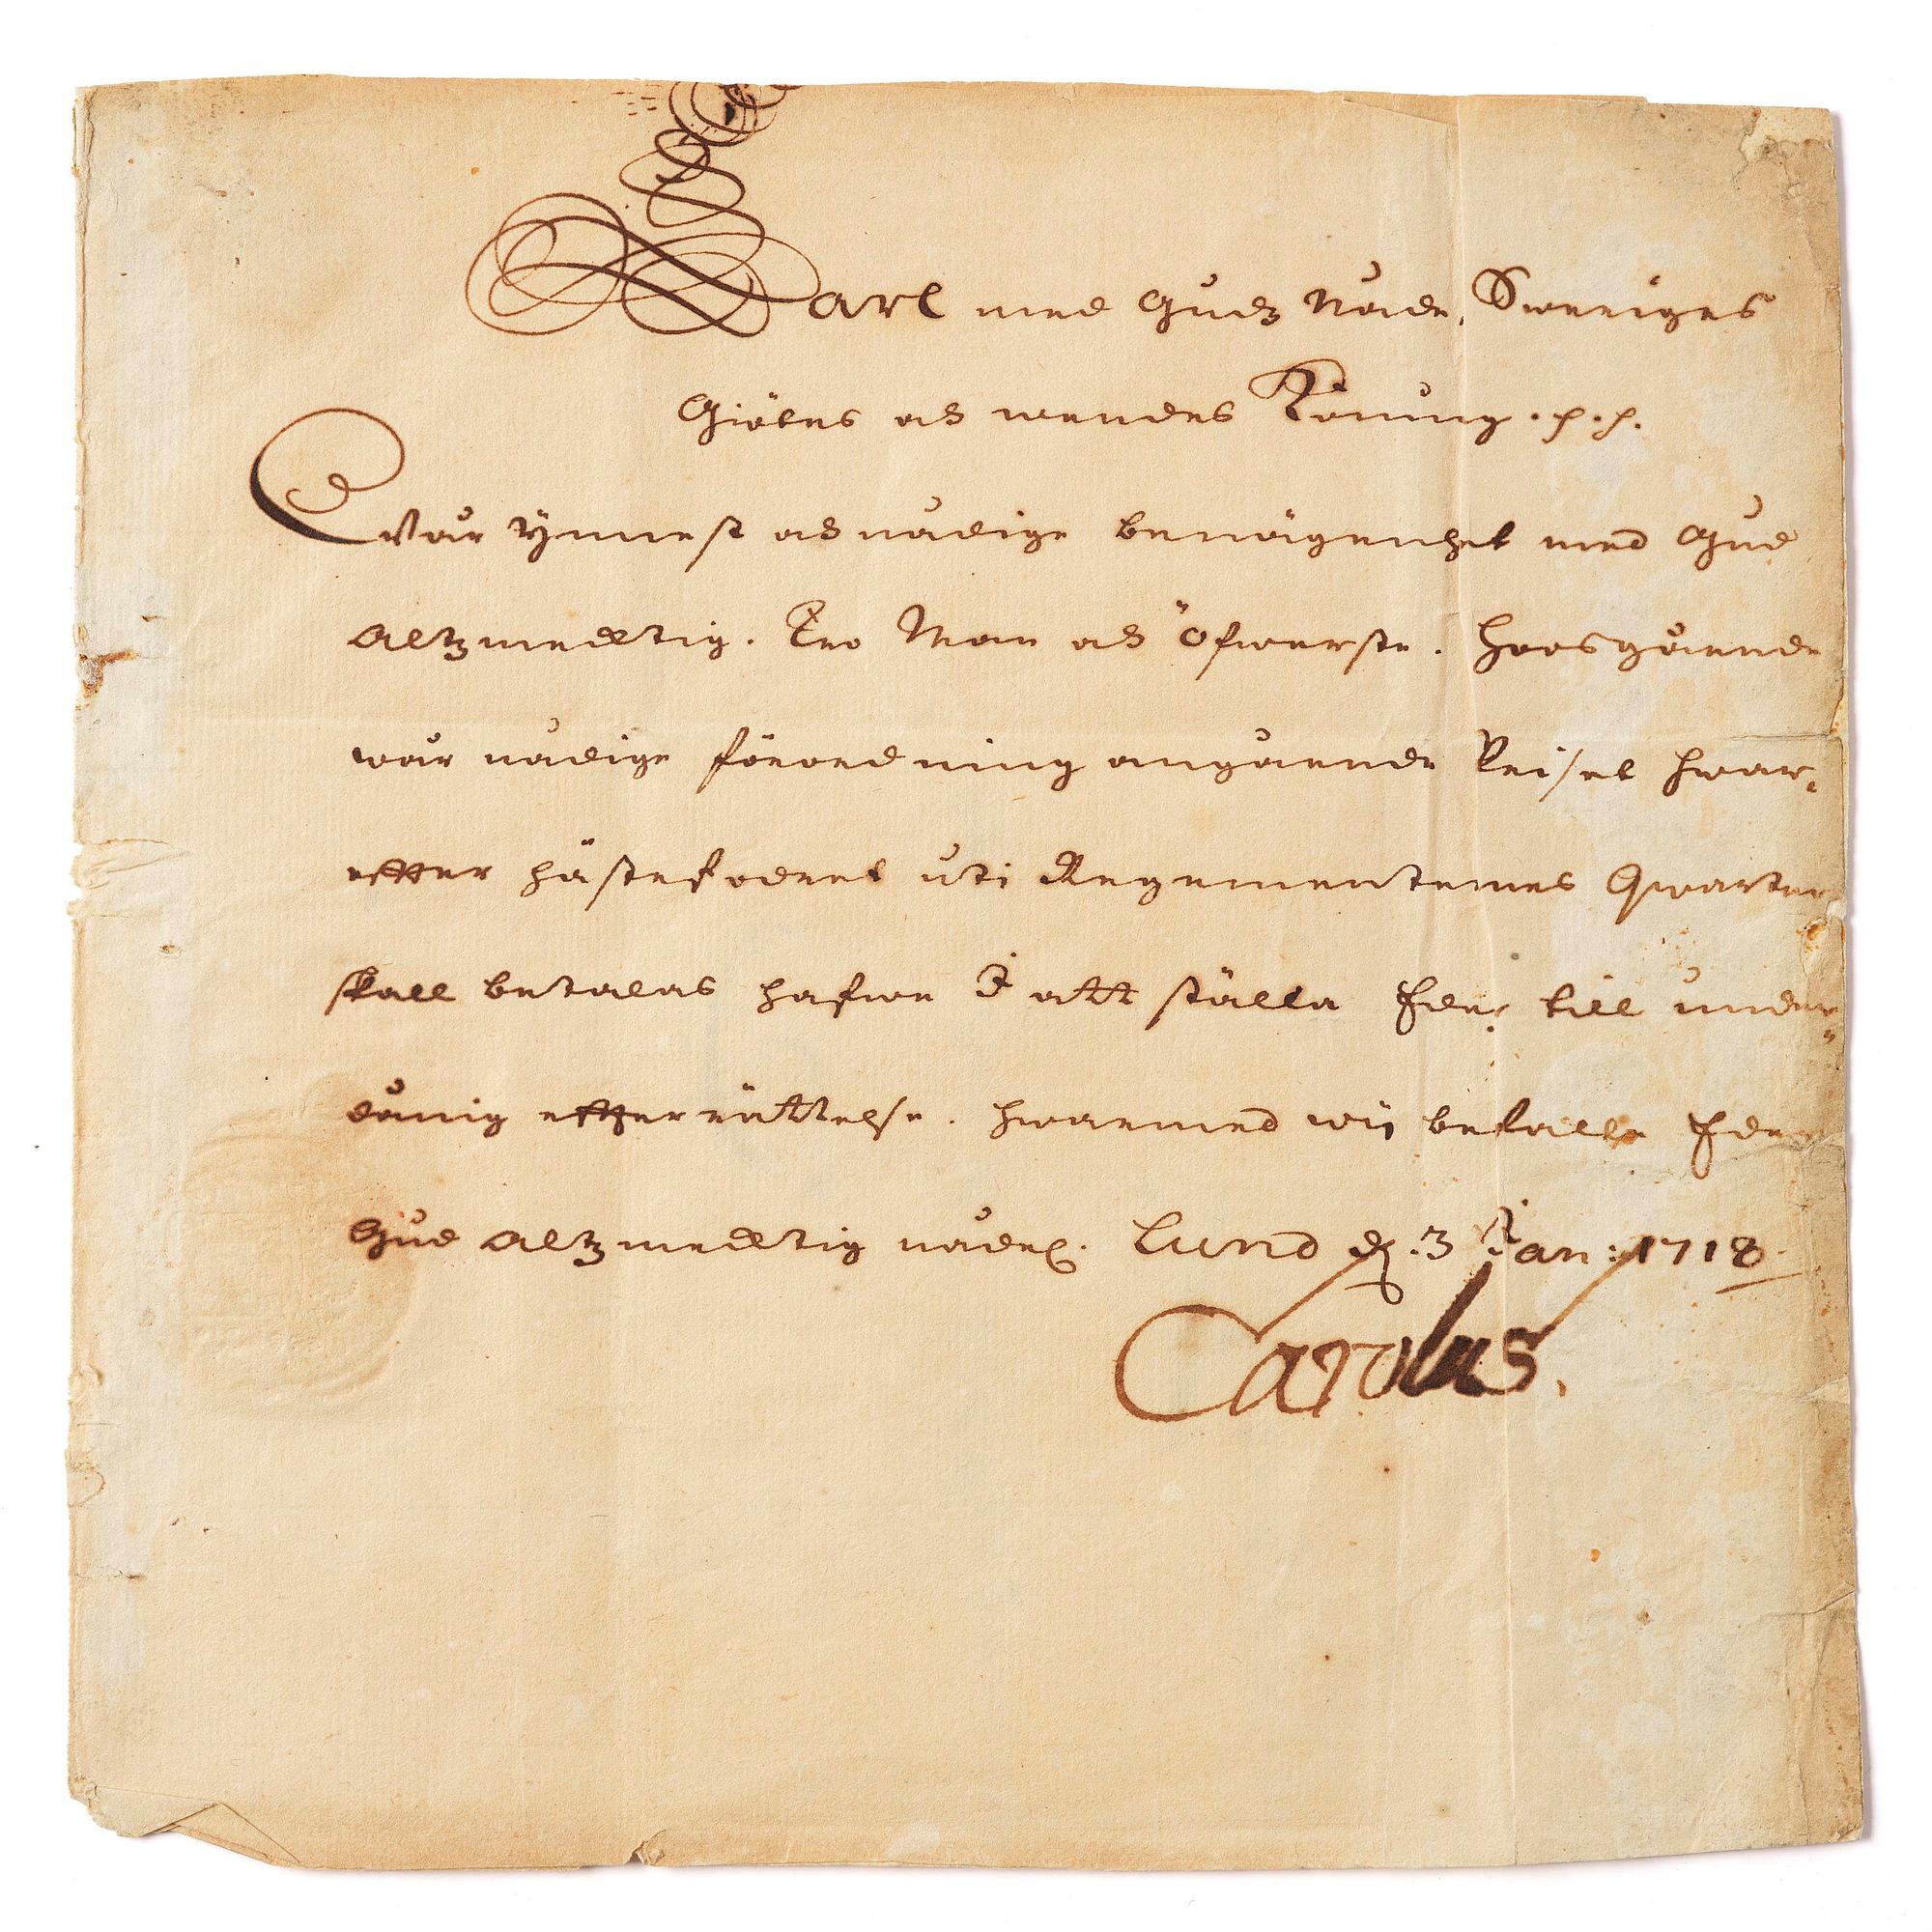 Carl med Gudz Nåde, Sweriges
Giötes och wendes Konung .p.p.
Wår ÿnnest och nådige benägenhet med Gud
Altzmechtig. Tro Man och Öfwerste. Hoosgåande
wår nådige förordning angående Priset hwar-
effter hästefodret uti Regementernes Qwarter
skall betalas hafwe I att ställa Eder till under-
dånig effterrättelse. Hwarmed wij befalle Eder
Gud Altzmechtig nådel. Lund d. 3 Jan: 1718
Carolus.